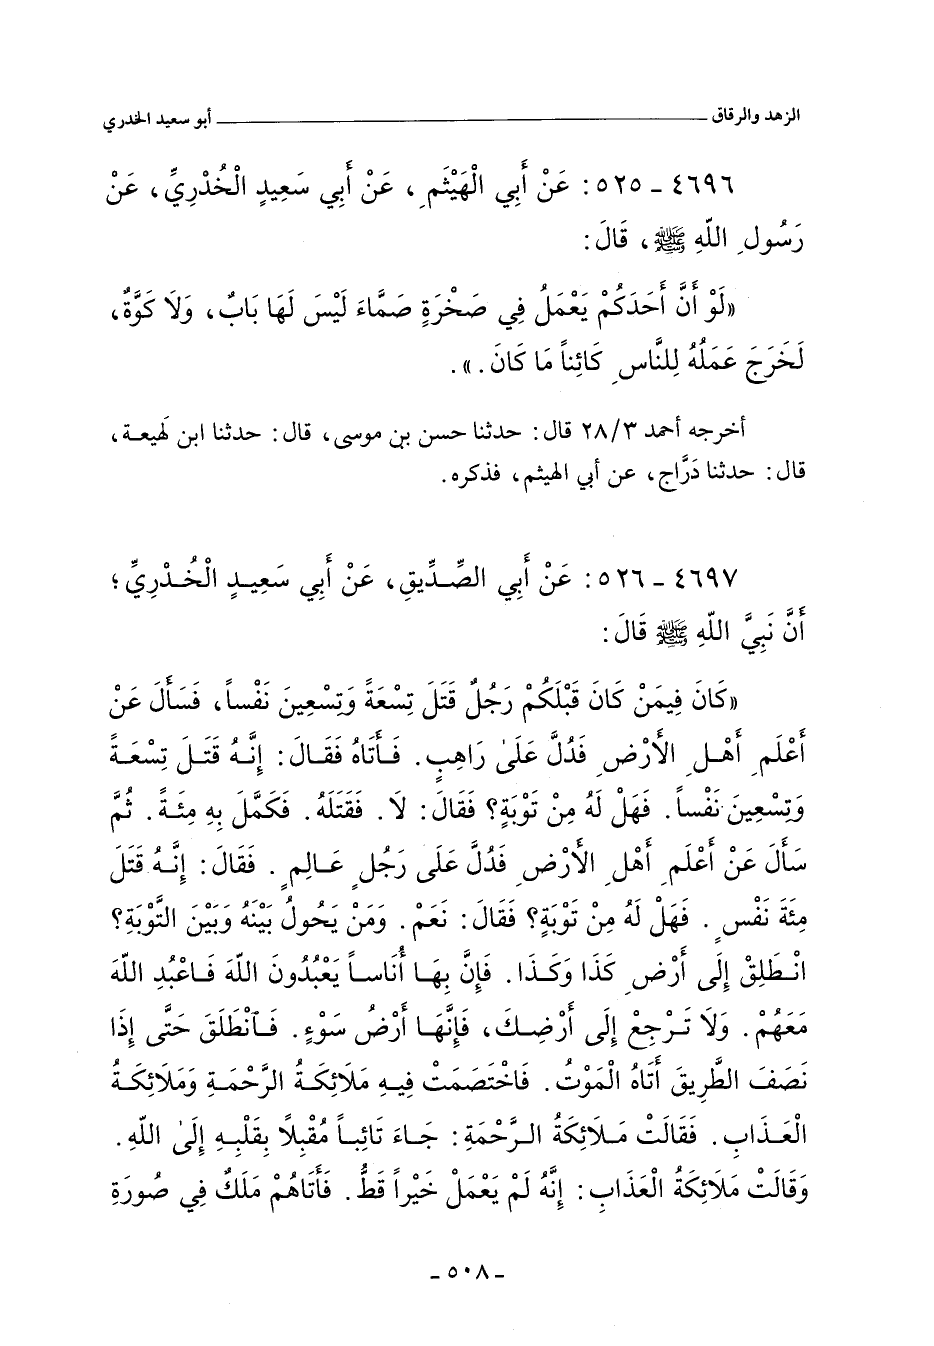 الزهد والرقاق ــــــــــــــــ أبو سعيد الخدري
٤٦٩٦ - ٥٢٥: عَنْ أَبِي الْهَيْثَمِ، عَنْ أَبِي سَعِيدٍ الْخُدْرِيِّ، عَنْ
رَسُولِ اللَّهِ ﷺ، قَالَ:
«لَوْ أَنَّ أَحَدَكُمْ يَعْمَلُ فِي صَخْرَةٍ صَمَّاءَ لَيْسَ لَهَا بَابٌ، وَلَا كَوَّةٌ،
لَخَرَجَ عَمَلُهُ لِلنَّاسِ كَائِناً مَا كَانَ.».
أخرجه أحمد ٢٨/٣ قال: حدثنا حسن بن موسى، قال: حدثنا ابن لهيعة،
قال: حدثنا دَرَّاج، عن أبي الهيثم، فذكره.
٤٦٩٧ - ٥٢٦: عَنْ أَبِي الصِّدِّيقِ، عَنْ أَبِي سَعِيدٍ الْخُدْرِيِّ؛
أَنَّ نَبِيَّ اللَّهِ ﷺ قَالَ:
«كَانَ فِيمَنْ كَانَ قَبْلَكُمْ رَجُلٌ قَتَلَ تِسْعَةً وَتِسْعِينَ نَفْساً، فَسَأَلَ عَنْ
أَعْلَمِ أَهْلِ الأَرْضِ فَدُلَّ عَلَىٰ رَاهِبٍ. فَأَتَاهُ فَقَالَ: إِنَّهُ قَتَلَ تِسْعَةً
وَتِسْعِينَ نَفْساً. فَهَلْ لَهُ مِنْ تَوْبَةٍ؟ فَقَالَ: لَا. فَقَتَلَهُ. فَكَمَّلَ بِهِ مِئَةً. ثُمَّ
سَأَلَ عَنْ أَعْلَمِ أَهْلِ الأَرْضِ فَدُلَّ عَلَى رَجُلٍ عَالِمٍ. فَقَالَ: إِنَّهُ قَتَلَ
مِئَةَ نَفْسٍ. فَهَلْ لَهُ مِنْ تَوْبَةٍ؟ فَقَالَ: نَعَمْ. وَمَنْ يَحُولُ بَيْنَهُ وَبَيْنَ التَّوْبَةِ؟
انْطَلِقْ إِلَى أَرْضِ كَذَا وَكَذَا. فَإِنَّ بِهَا أُنَاساً يَعْبُدُونَ اللَّهَ فَاعْبُدِ اللَّهَ
مَعَهُمْ. وَلَا تَرْجِعْ إِلَى أَرْضِكَ، فَإِنَّهَا أَرْضُ سَوْءٍ. فَٱنْطَلَقَ حَتَّى إِذَا
نَصَفَ الطَّرِيقَ أَتَاهُ الْمَوْتُ. فَاخْتَصَمَتْ فِيهِ مَلَائِكَةُ الرَّحْمَةِ وَمَلَائِكَةُ
الْعَذَابِ. فَقَالَتْ مَلَائِكَةُ الرَّحْمَةِ: جَاءَ تَائِباً مُقْبِلاً بِقَلْبِهِ إِلَىٰ اللَّهِ.
وَقَالَتْ مَلَائِكَةُ الْعَذَابِ: إِنَّهُ لَمْ يَعْمَلْ خَيْراً قَطُّ. فَأَتَاهُمْ مَلَكٌ فِي صُورَةِ
- ٥٠٨ -